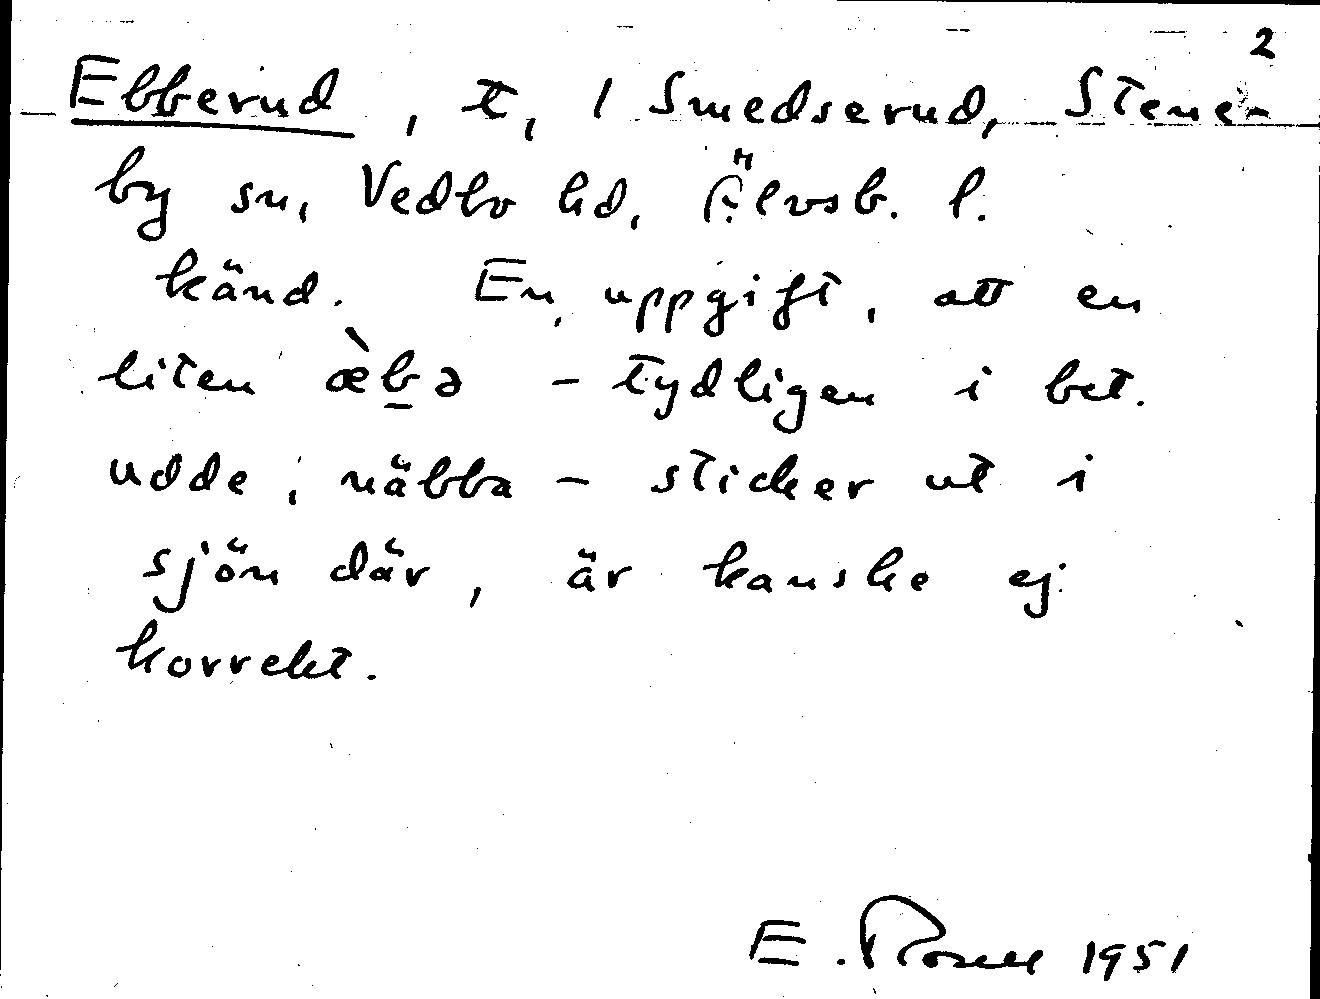 2
Ebberud, t, / Smedserud, Stene-
by sn, Vedbo hd, Älvsb. l.
känd. En uppgift, att en
liten æ̀b̲ə – tydligen i bet.
udde, näbba – sticker ut i
sjön där, är kanske ej
korrekt.
E. 1951